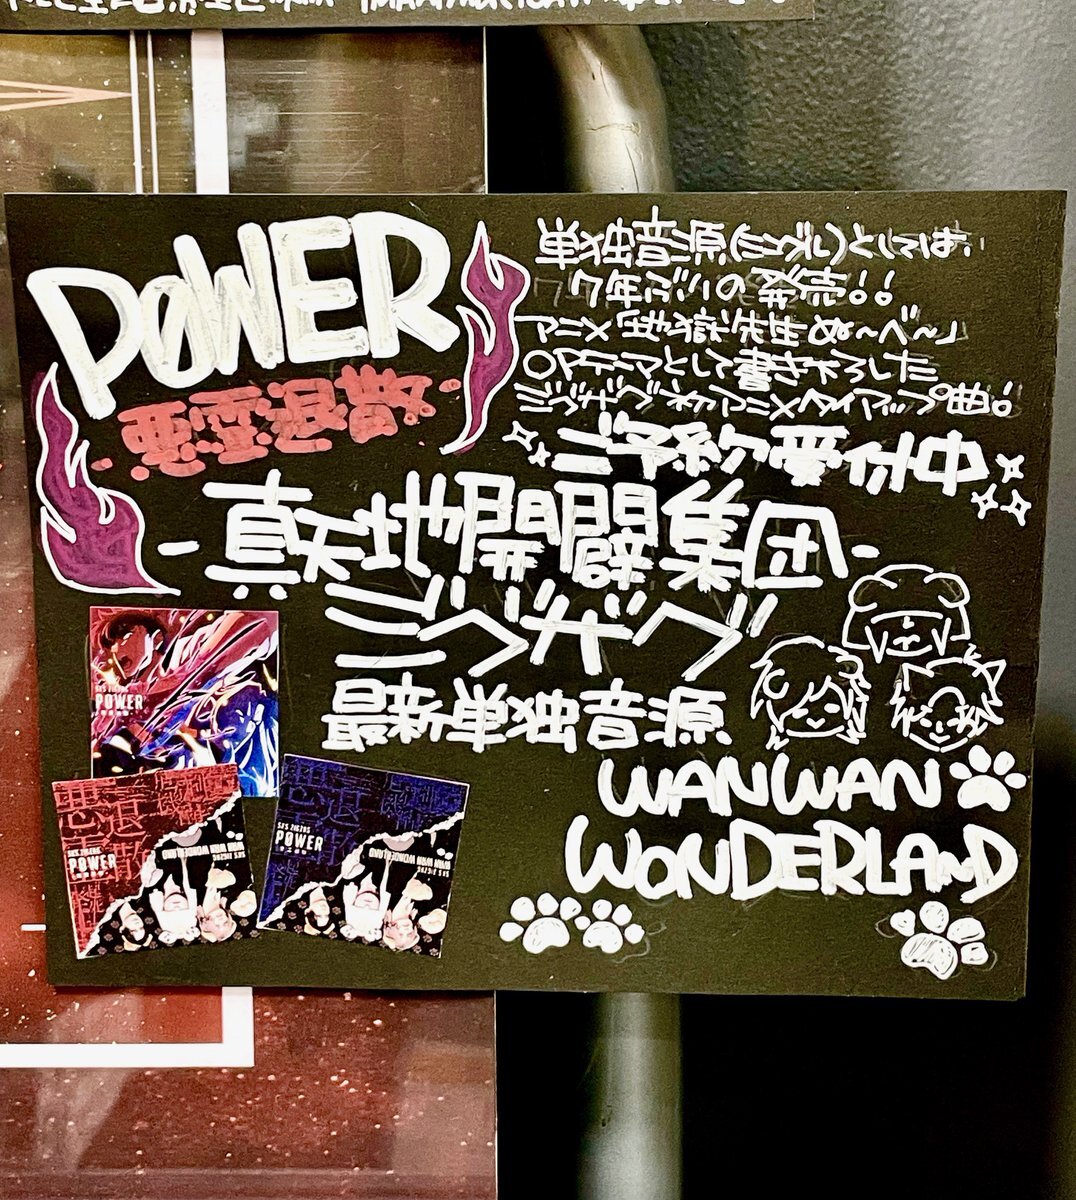 POWER
悪霊退散
単独音源(シングル)としては
7年ぶりの発売!!
アニメ「地獄先生ぬ~べ~」
OPテーマとして書き下ろした
ジグザグ初アニメタイアップ曲!
ご予約受付中
-真天地開闢集団-
ジグザグ
最新単独音源
WANWAN
WONDERLAND
POWER
POWER
POWER
WAN WAN WONDERLAND
WAN WAN WONDERLAND